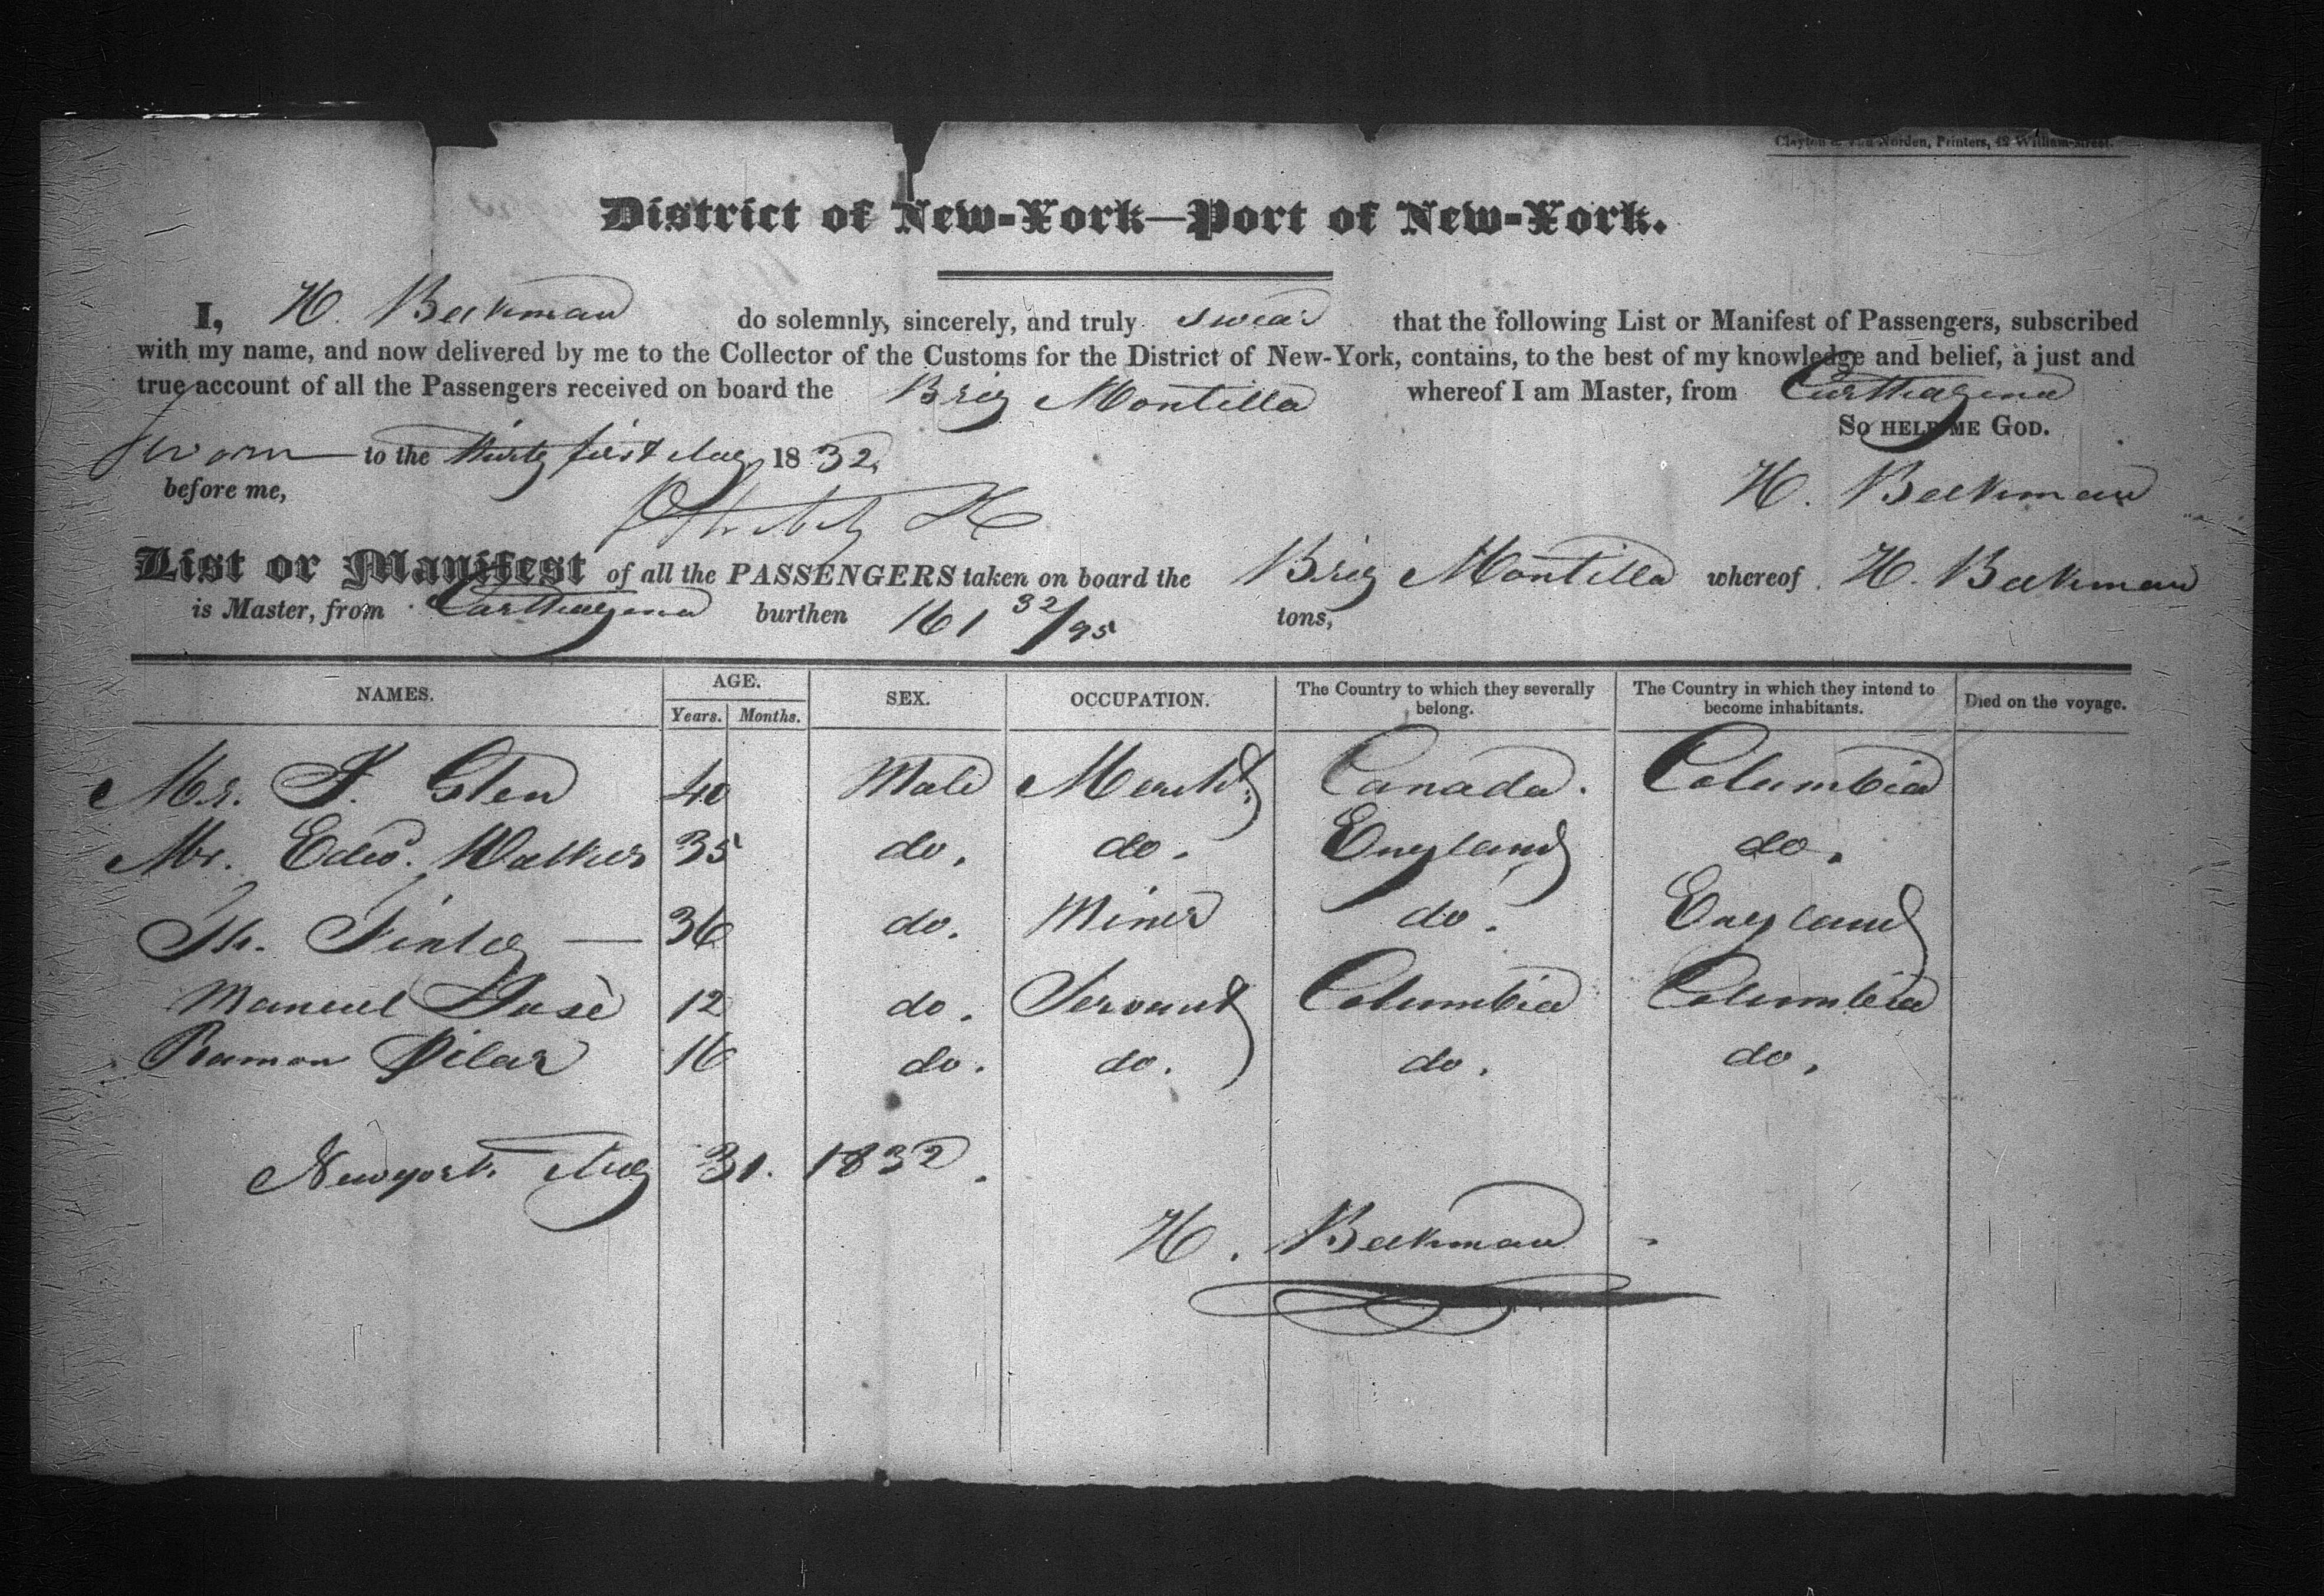 Clayton & Van Norden, Printers, 42 William-street.
District of New-York—Port of New-York.
I, H. Beekman do solemnly, sincerely, and truly swear that the following List or Manifest of Passengers, subscribed
with my name, and now delivered by me to the Collector of the Customs for the District of New-York, contains, to the best of my knowledge and belief, a just and
true account of all the Passengers received on board the Brig Montilla whereof I am Master, from Carthagena
So help me God.
Sworn to the thirty first Aug 1832.
before me,
H. Beekman
List or Manifest of all the PASSENGERS taken on board the Brig Montilla whereof H. Beekman
is Master, from Carthagena burthen 161 32/95 tons,
NAMES. AGE. SEX. OCCUPATION. The Country to which they severally belong. The Country in which they intend to become inhabitants. Died on the voyage.
Years. Months.
Mr. J. Glen 40 Male Mercht. Canada. Columbia
Mr. Edwd. Walker 35 do. do. England do.
Th. Finley — 36 do. Miner do. England
Manuel José 12 do. Servant Columbia Columbia
Ramon Pilar 16 do. do. do. do.
Newyork Aug 31. 1832.
H. Beekman